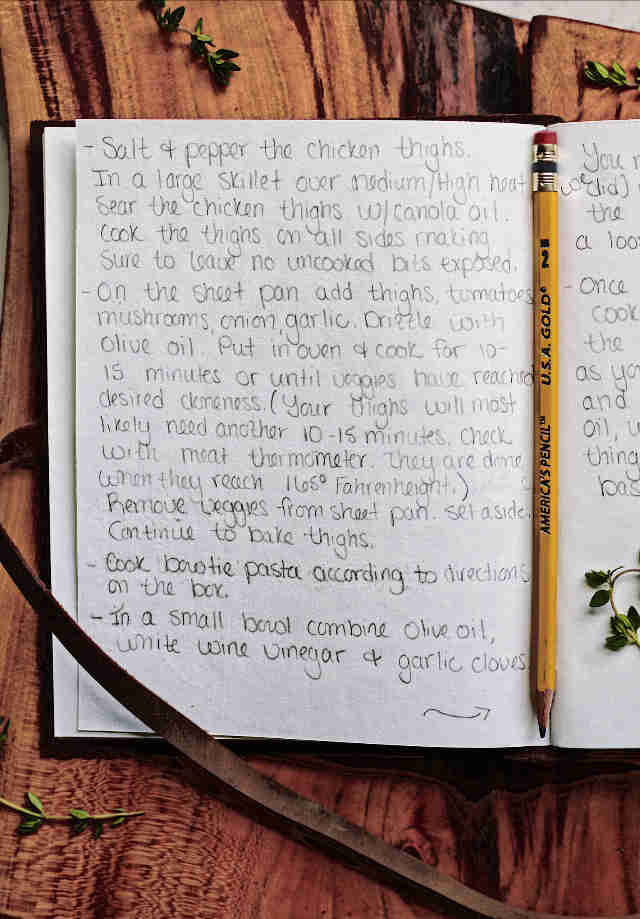 - Salt & pepper the chicken thighs.
In a large skillet over medium/High heat
Sear the chicken thighs w/canola oil.
Cook the thighs on all sides making
Sure to leave no uncooked bits exposed.
- On the sheet pan add thighs, tomatoes
mushrooms, onion, garlic. Drizzle with
Olive oil. Put in oven & cook for 10-
15 minutes or until veggies have reached
desired doneness. (Your thighs will most
likely need another 10-15 minutes. Check
with meat thermometer. They are done
when they reach 165° Fahrenheight.)
Remove veggies from sheet pan. Set aside.
Continue to bake thighs.
- Cook bowtie pasta according to directions
on the box.
- In a small bowl combine olive oil,
white wine vinegar & garlic cloves.
AMERICA'S PENCIL™ U.S.A. GOLD® 2
You
we did)
the
a loo
- Once
cook
the
as yo
and
oil,
thing
bas